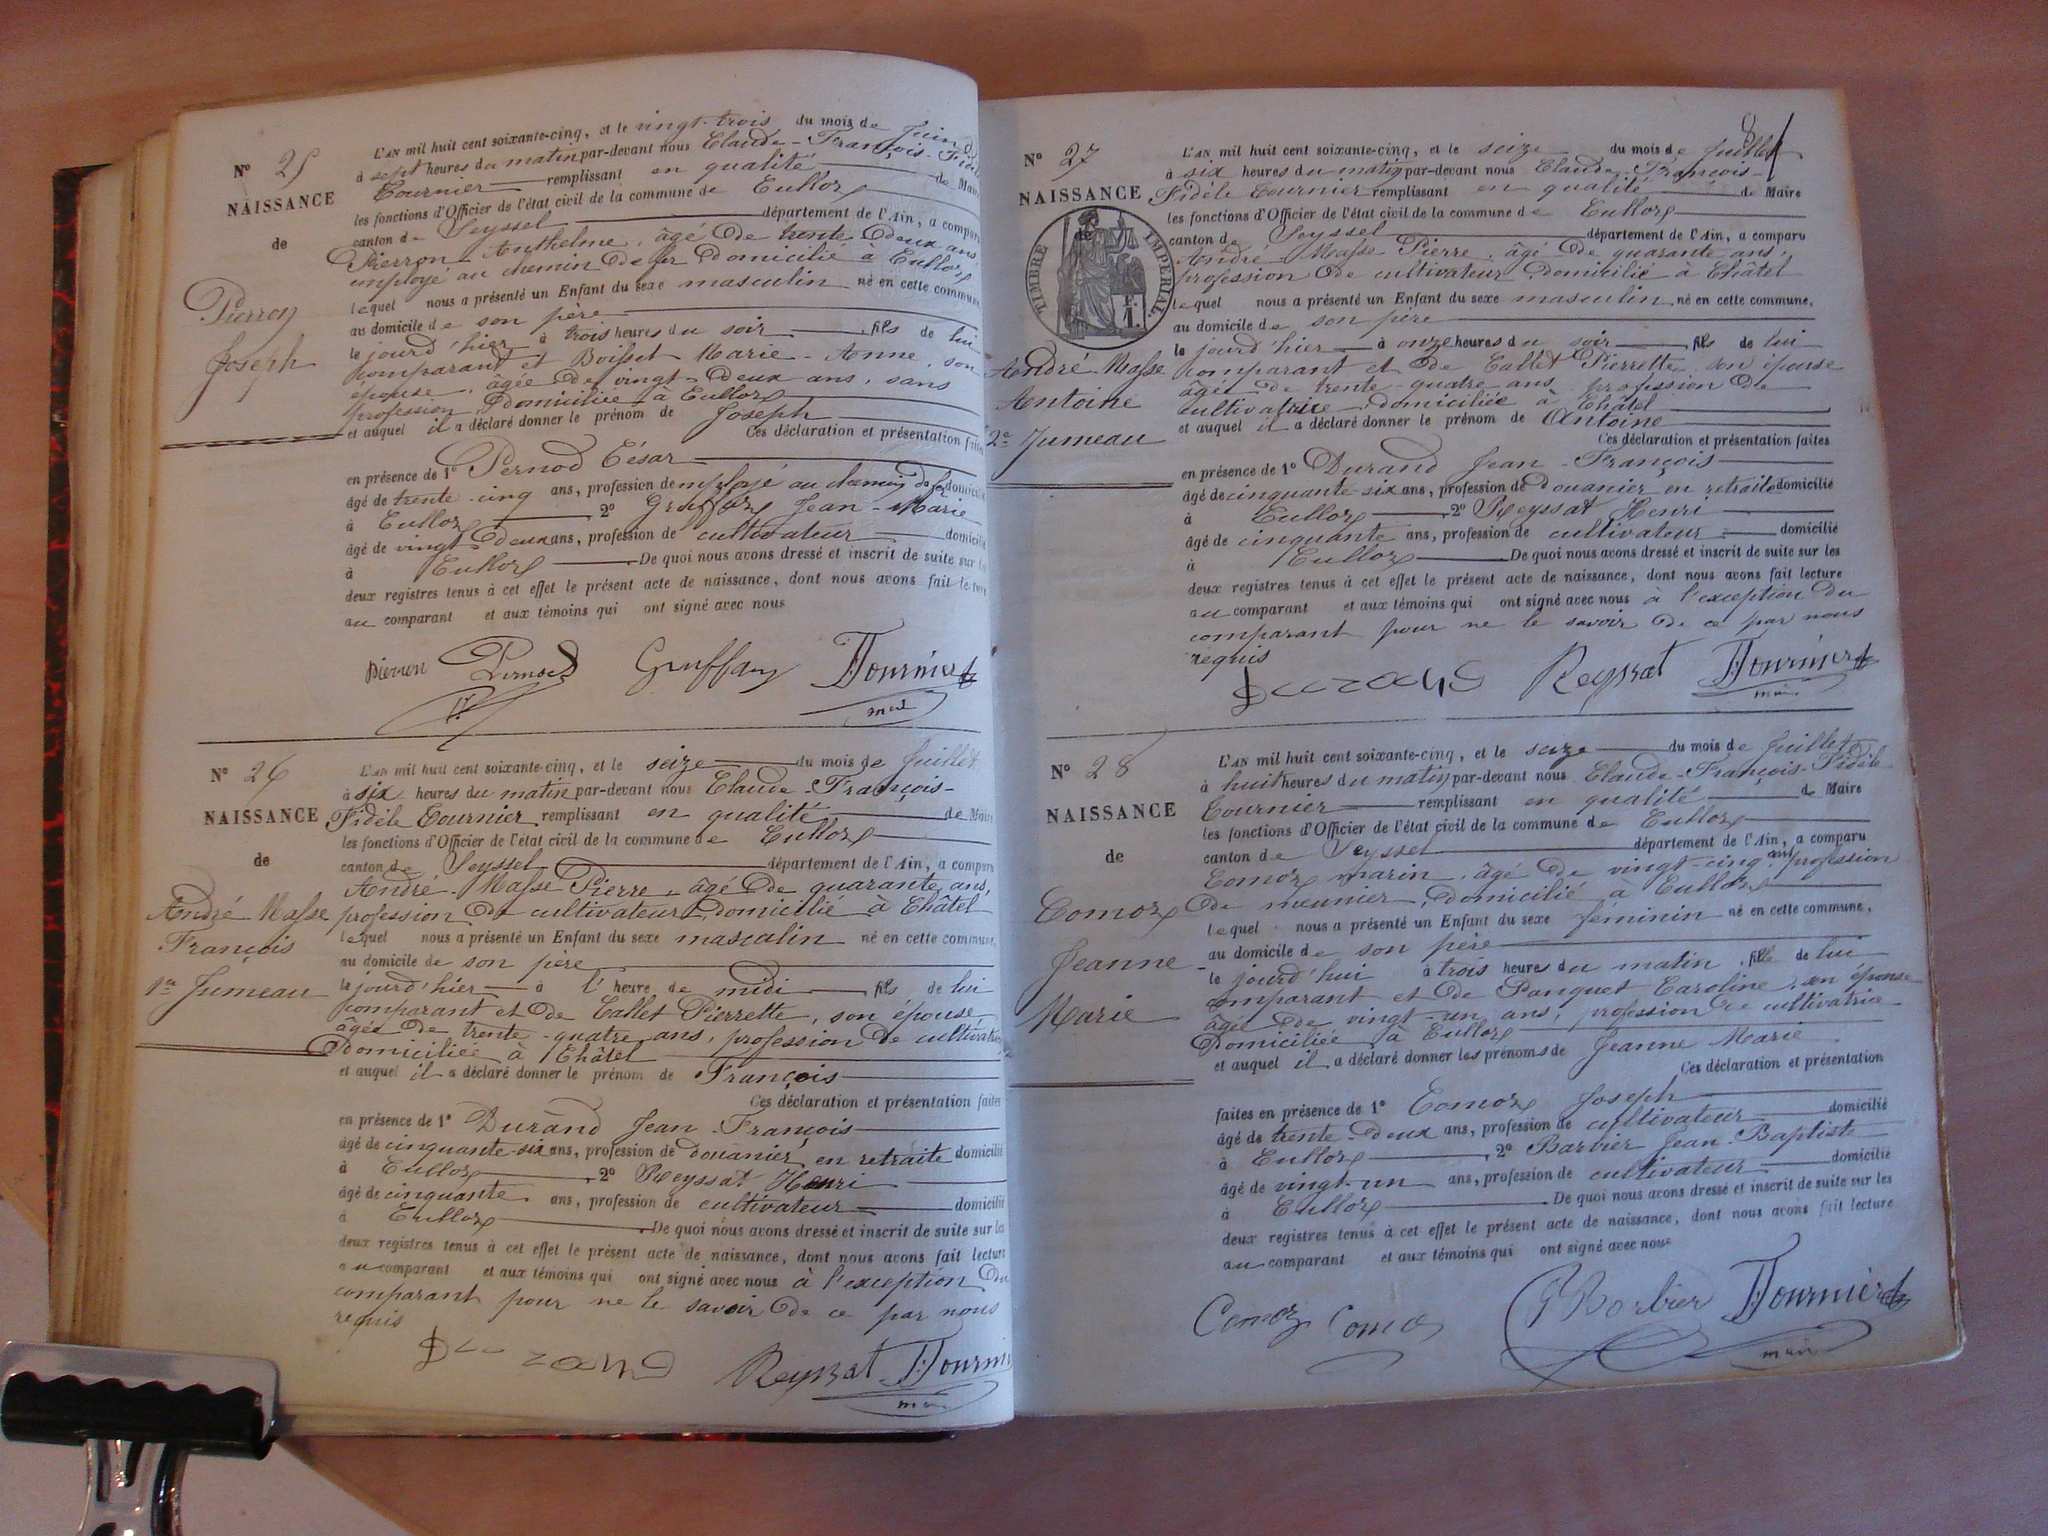 N° 25
NAISSANCE
de
Pierron
Joseph
L'AN mil huit cent soixante-cinq, et le vingt-trois du mois de Juin
à sept heures du matin par-devant nous Claude-François-Fidèle
Tournier remplissant en qualité de Maire
les fonctions d'Officier de l'état civil de la commune de Culloz
canton de Seyssel département de l'Ain, a comparu
Pierron Anthelme, âgé de trente deux ans,
employé au chemin de fer domicilié à Culloz
lequel nous a présenté un Enfant du sexe masculin né en cette commune,
au domicile de son père
le jourd'hier à trois heures du soir, fils de lui
comparant et Boisset Marie-Anne, son
épouse, âgée de vingt-deux ans, sans
profession domiciliée à Culloz
et auquel il a déclaré donner le prénom de Joseph
Ces déclaration et présentation faites
en présence de 1° Pernod César
âgé de trente-cinq ans, profession de employé au chemin de fer domicilié
à Culloz 2° Gruffaz Jean-Marie
âgé de vingt-deux ans, profession de cultivateur domicilié
à Culloz De quoi nous avons dressé et inscrit de suite sur les
deux registres tenus à cet effet le présent acte de naissance, dont nous avons fait lecture
au comparant et aux témoins qui ont signé avec nous
Pierron Pernod Gruffaz Tournier
maire
N° 26
NAISSANCE
de
André Masse
François
1er Jumeau
L'AN mil huit cent soixante-cinq, et le seize du mois de Juillet
à six heures du matin par-devant nous Claude-François-
Fidèle Tournier remplissant en qualité de Maire
les fonctions d'Officier de l'état civil de la commune de Culloz
canton de Seyssel département de l'Ain, a comparu
André-Masse Pierre, âgé de quarante ans,
profession de cultivateur domicilié à Châtel
lequel nous a présenté un Enfant du sexe masculin né en cette commune,
au domicile de son père
le jourd'hier à l'heure de midi fils de lui
comparant et de Callet Pierrette, son épouse
âgée de trente-quatre ans, profession de cultivatrice
domiciliée à Châtel
et auquel il a déclaré donner le prénom de François
Ces déclaration et présentation faites
en présence de 1° Durand Jean-François
âgé de cinquante-six ans, profession de douanier en retraite domicilié
à Culloz 2° Reyssat Henri
âgé de cinquante ans, profession de cultivateur domicilié
à Culloz De quoi nous avons dressé et inscrit de suite sur les
deux registres tenus à cet effet le présent acte de naissance, dont nous avons fait lecture
au comparant et aux témoins qui ont signé avec nous à l'exception du
comparant pour ne le savoir de ce par nous
requis
Durand Reyssat Tournier
maire
N° 27
NAISSANCE
de
TIMBRE IMPERIAL
1 F.
André Masse
Antoine
2e Jumeau
8
L'AN mil huit cent soixante-cinq, et le seize du mois de Juillet
à six heures du matin par-devant nous Claude-François-
Fidèle Tournier remplissant en qualité de Maire
les fonctions d'Officier de l'état civil de la commune de Culloz
canton de Seyssel département de l'Ain, a comparu
André-Masse Pierre, âgé de quarante ans,
profession de cultivateur domicilié à Châtel
lequel nous a présenté un Enfant du sexe masculin né en cette commune,
au domicile de son père
le jourd'hier à onze heures du soir fils de lui
comparant et de Callet Pierrette son épouse
âgée de trente-quatre ans profession de
cultivatrice, domiciliée à Châtel
et auquel il a déclaré donner le prénom de Antoine
Ces déclaration et présentation faites
en présence de 1° Durand Jean-François
âgé de cinquante six ans, profession de douanier en retraite domicilié
à Culloz 2° Reyssat Henri
âgé de cinquante ans, profession de cultivateur domicilié
à Culloz De quoi nous avons dressé et inscrit de suite sur les
deux registres tenus à cet effet le présent acte de naissance, dont nous avons fait lecture
au comparant et aux témoins qui ont signé avec nous à l'exception du
comparant pour ne le savoir de ce par nous
requis
Durand Reyssat Tournier
maire
N° 28
NAISSANCE
de
Comoz
Jeanne
Marie
L'AN mil huit cent soixante-cinq, et le seize du mois de Juillet
à huit heures du matin par-devant nous Claude-François-Fidèle
Tournier remplissant en qualité de Maire
les fonctions d'Officier de l'état civil de la commune de Culloz
canton de Seyssel département de l'Ain, a comparu
Comoz marin, âgé de vingt-cinq ans profession
de meunier, domicilié à Culloz
lequel nous a présenté un Enfant du sexe féminin né en cette commune,
au domicile de son père
le jourd'hui à trois heures du matin, fille de lui
comparant et de Panquet Caroline, son épouse
âgée de vingt-un ans, profession de cultivatrice
domiciliée à Culloz
et auquel il a déclaré donner les prénoms de Jeanne Marie
Ces déclaration et présentation
faites en présence de 1° Comoz Joseph
âgé de trente-deux ans, profession de cultivateur domicilié
à Culloz, 2° Barbier Jean-Baptiste
âgé de vingt-un ans, profession de cultivateur domicilié
à Culloz De quoi nous avons dressé et inscrit de suite sur les
deux registres tenus à cet effet le présent acte de naissance, dont nous avons fait lecture
au comparant et aux témoins qui ont signé avec nous
Comoz Comoz Barbier Tournier
maire